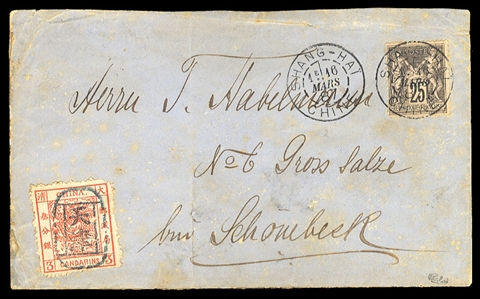 SHANG-HAÏ
16
MARS
CHINE
25
Herrn T. Nabelmann
No 6 Gross Salze
bei Schönebeck
大
清
CHINA
叁分銀
3 CANDARINS 3